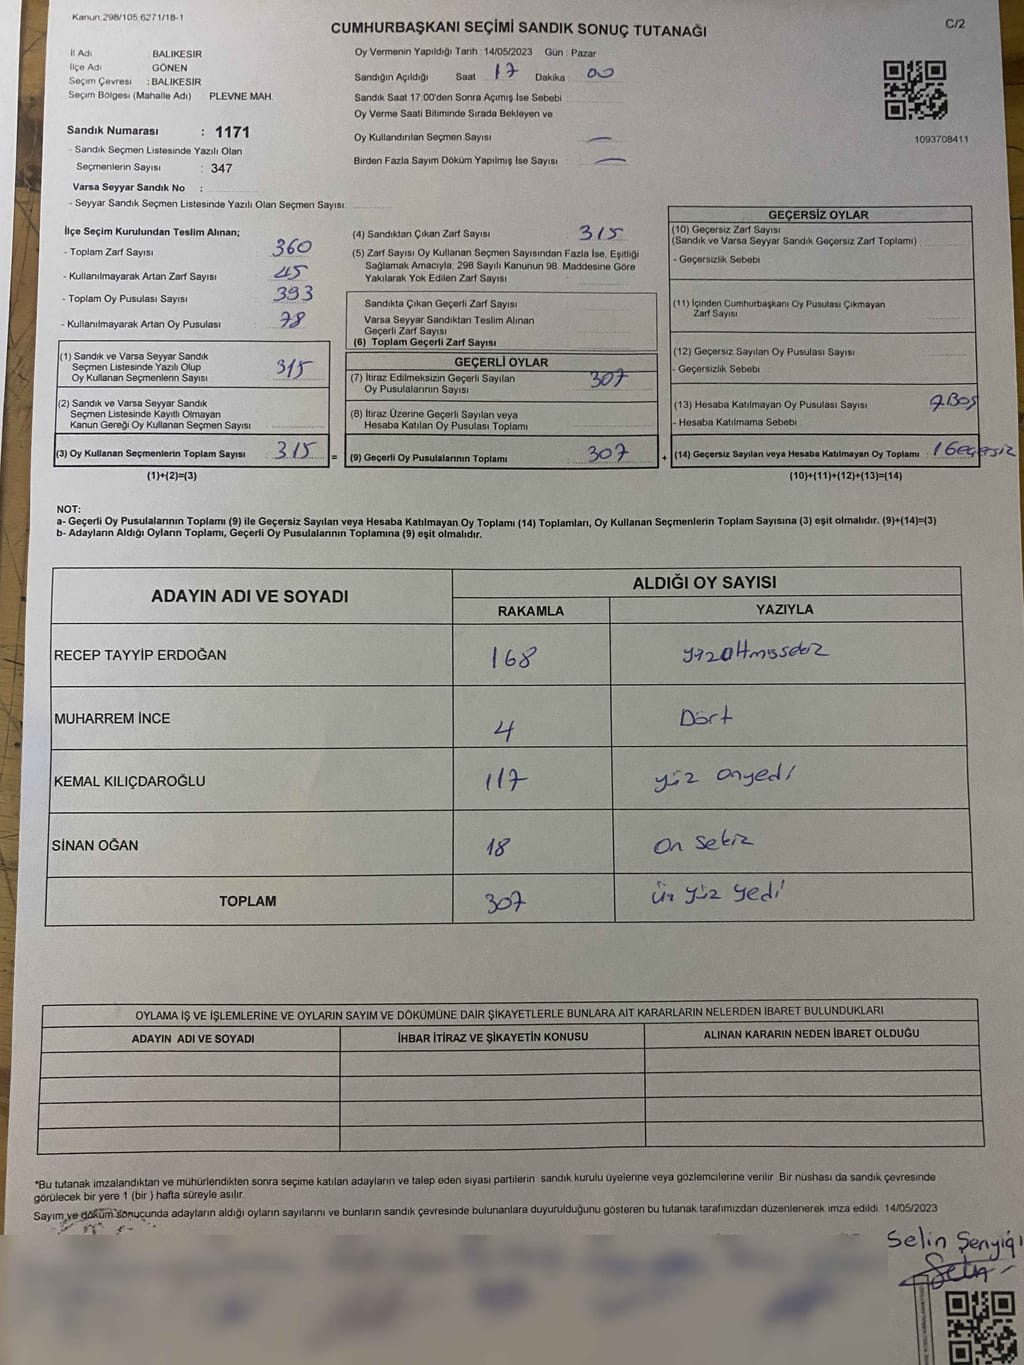 Kanun 298/105,6271/18-1
CUMHURBAŞKANI SEÇİMİ SANDIK SONUÇ TUTANAĞI
C/2
İl Adı BALIKESİR
İlçe Adı GÖNEN
Seçim Çevresi : BALIKESİR
Seçim Bölgesi (Mahalle Adı) PLEVNE MAH.
Oy Vermenin Yapıldığı Tarih : 14/05/2023 Gün : Pazar
Sandığın Açıldığı Saat 17 Dakika 00
Sandık Saat 17:00'den Sonra Açımış İse Sebebi
Oy Verme Saati Bitiminde Sırada Bekleyen ve
Oy Kullandırılan Seçmen Sayısı —
Birden Fazla Sayım Döküm Yapılmış İse Sayısı —
1093708411
Sandık Numarası : 1171
- Sandık Seçmen Listesinde Yazılı Olan
Seçmenlerin Sayısı : 347
Varsa Seyyar Sandık No :
- Seyyar Sandık Seçmen Listesinde Yazılı Olan Seçmen Sayısı:
İlçe Seçim Kurulundan Teslim Alınan;
- Toplam Zarf Sayısı 360
- Kullanılmayarak Artan Zarf Sayısı 45
- Toplam Oy Pusulası Sayısı 393
- Kullanılmayarak Artan Oy Pusulası 78
(1) Sandık ve Varsa Seyyar Sandık
Seçmen Listesinde Yazılı Olup
Oy Kullanan Seçmenlerin Sayısı 315
(2) Sandık ve Varsa Seyyar Sandık
Seçmen Listesinde Kayıtlı Olmayan
Kanun Gereği Oy Kullanan Seçmen Sayısı
(3) Oy Kullanan Seçmenlerin Toplam Sayısı : 315
(1)+(2)=(3)
(4) Sandıktan Çıkan Zarf Sayısı 315
(5) Zarf Sayısı Oy Kullanan Seçmen Sayısından Fazla İse, Eşitliği
Sağlamak Amacıyla, 298 Sayılı Kanunun 98. Maddesine Göre
Yakılarak Yok Edilen Zarf Sayısı
Sandıkta Çıkan Geçerli Zarf Sayısı
Varsa Seyyar Sandıktan Teslim Alınan
Geçerli Zarf Sayısı
(6) Toplam Geçerli Zarf Sayısı
GEÇERLİ OYLAR
(7) İtiraz Edilmeksizin Geçerli Sayılan
Oy Pusulalarının Sayısı 307
(8) İtiraz Üzerine Geçerli Sayılan veya
Hesaba Katılan Oy Pusulası Toplamı
= (9) Geçerli Oy Pusulalarının Toplamı 307 +
GEÇERSİZ OYLAR
(10) Geçersiz Zarf Sayısı
(Sandık ve Varsa Seyyar Sandık Geçersiz Zarf Toplamı)
- Geçersizlik Sebebi
(11) İçinden Cumhurbaşkanı Oy Pusulası Çıkmayan
Zarf Sayısı
(12) Geçersiz Sayılan Oy Pusulası Sayısı
- Geçersizlik Sebebi
(13) Hesaba Katılmayan Oy Pusulası Sayısı 7 Boş
- Hesaba Katılmama Sebebi
(14) Geçersiz Sayılan veya Hesaba Katılmayan Oy Toplamı : 1 Geçersiz
(10)+(11)+(12)+(13)=(14)
NOT:
a- Geçerli Oy Pusulalarının Toplamı (9) ile Geçersiz Sayılan veya Hesaba Katılmayan Oy Toplamı (14) Toplamları, Oy Kullanan Seçmenlerin Toplam Sayısına (3) eşit olmalıdır. (9)+(14)=(3)
b- Adayların Aldığı Oyların Toplamı, Geçerli Oy Pusulalarının Toplamına (9) eşit olmalıdır.
ADAYIN ADI VE SOYADI
ALDIĞI OY SAYISI
RAKAMLA YAZIYLA
RECEP TAYYİP ERDOĞAN 168 yüzaltmışsekiz
MUHARREM İNCE 4 Dört
KEMAL KILIÇDAROĞLU 117 yüz onyedi
SİNAN OĞAN 18 on sekiz
TOPLAM 307 üç yüz yedi
OYLAMA İŞ VE İŞLEMLERİNE VE OYLARIN SAYIM VE DÖKÜMÜNE DAİR ŞİKAYETLERLE BUNLARA AİT KARARLARIN NELERDEN İBARET BULUNDUKLARI
ADAYIN ADI VE SOYADI İHBAR İTİRAZ VE ŞİKAYETİN KONUSU ALINAN KARARIN NEDEN İBARET OLDUĞU
*Bu tutanak imzalandıktan ve mühürlendikten sonra seçime katılan adayların ve talep eden siyasi partilerin sandık kurulu üyelerine veya gözlemcilerine verilir. Bir nüshası da sandık çevresinde
görülecek bir yere 1 (bir ) hafta süreyle asılır.
Sayım ve döküm sonucunda adayların aldığı oyların sayılarını ve bunların sandık çevresinde bulunanlara duyurulduğunu gösteren bu tutanak tarafımızdan düzenlenerek imza edildi. 14/05/2023
Selin Şenyiğı